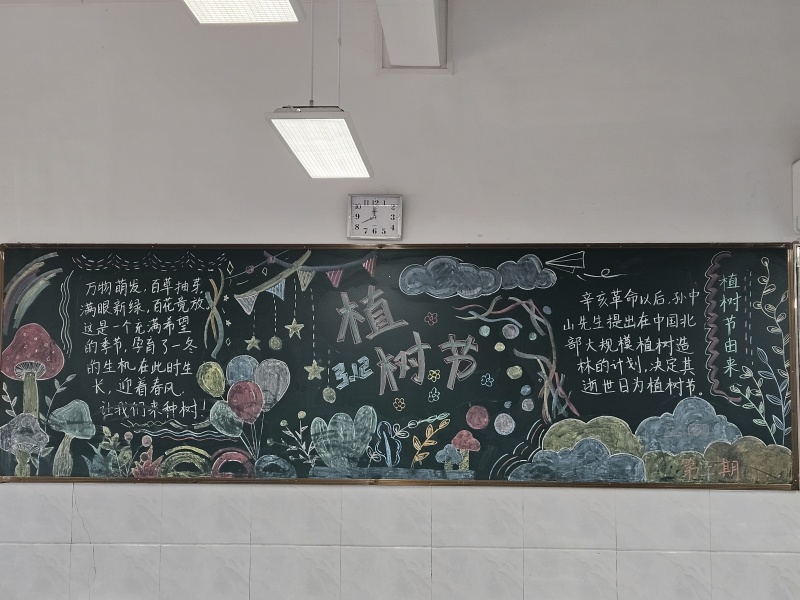 万物萌发，百草抽芽，
满眼新绿，百花竞放
这是一个充满希望
的季节，孕育了一冬
的生机在此时生
长，迎着春风，
让我们来种树！
植树节
3.12
辛亥革命以后，孙中
山先生提出在中国北
部大规模植树造
林的计划，决定其
逝世日为植树节。
植树节由来